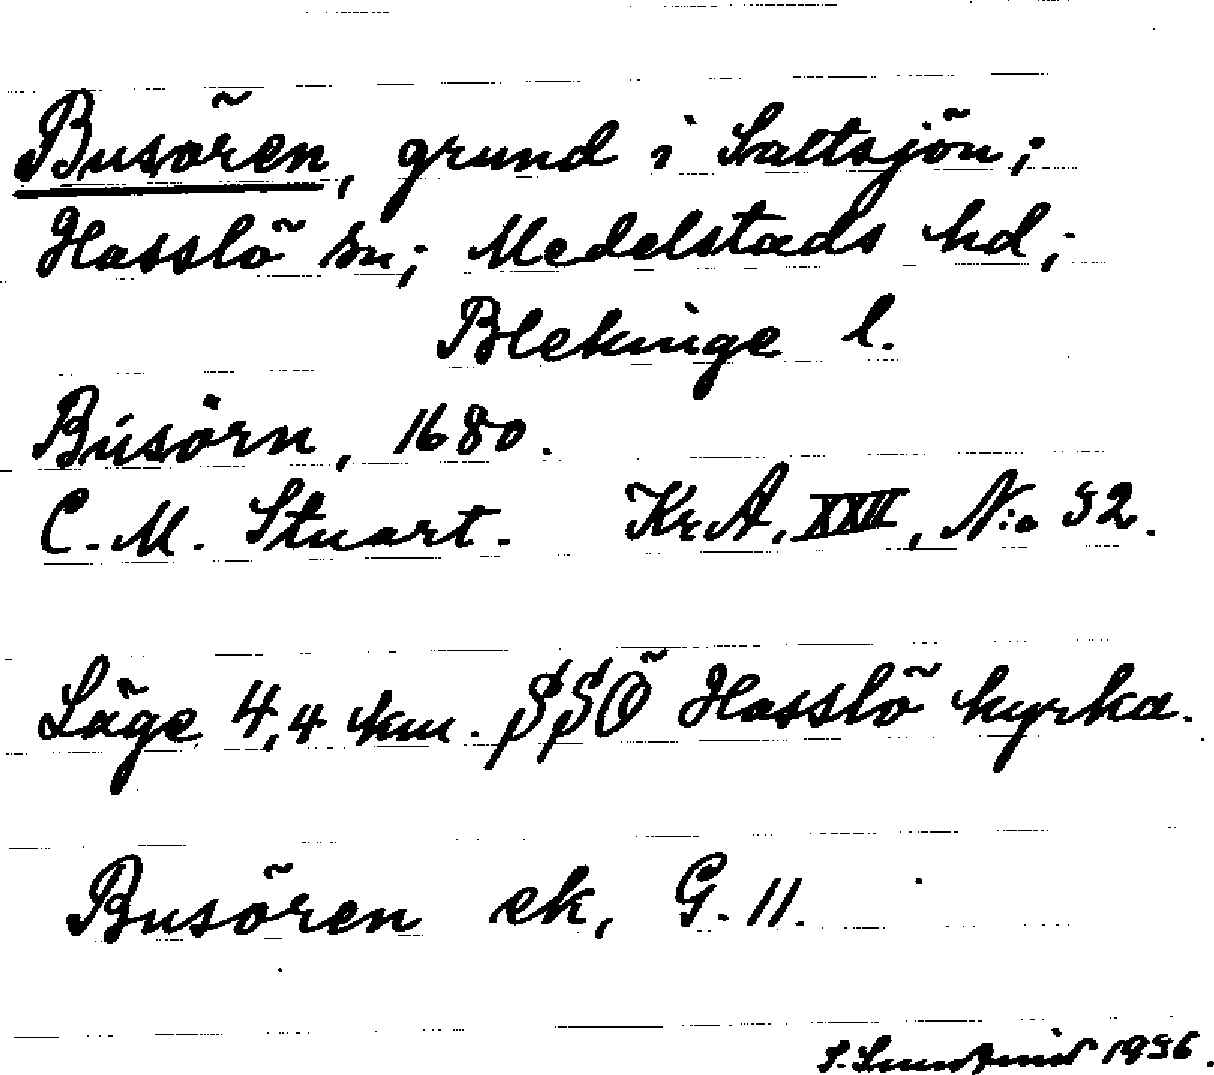 Busören, grund i Saltsjön;
Hasslö sn; Medelstads hd;
Blekinge l.
Búsörn, 1680.
C. M. Stuart. KrA. XXII, N:o 52.
Läge 4,4 km. SSÖ Hasslö kyrka.
Busören ek, G. 11.
1956.